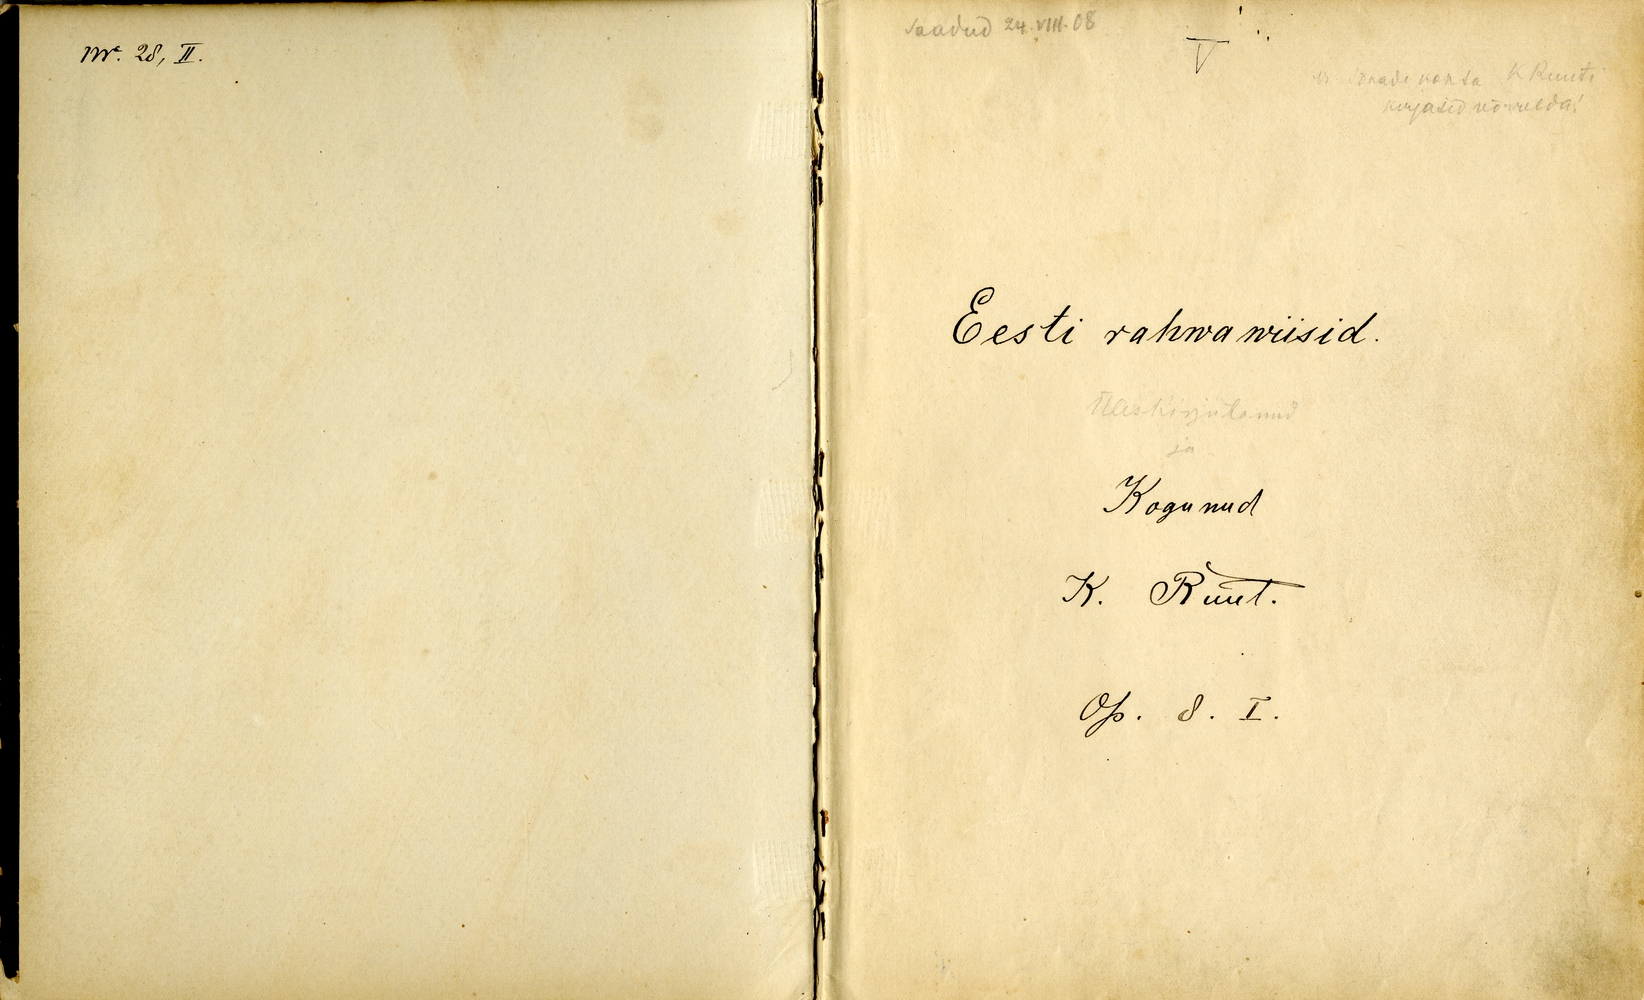 Nr. 28, II.
Saadud 24.VIII.08
V
sõnade kohta K Ruuti
kirjasid võrrelda!
Eesti rahwawiisid.
Üleskirjutanud
ja
Kogunud
K. Ruut.
Op. 8. I.